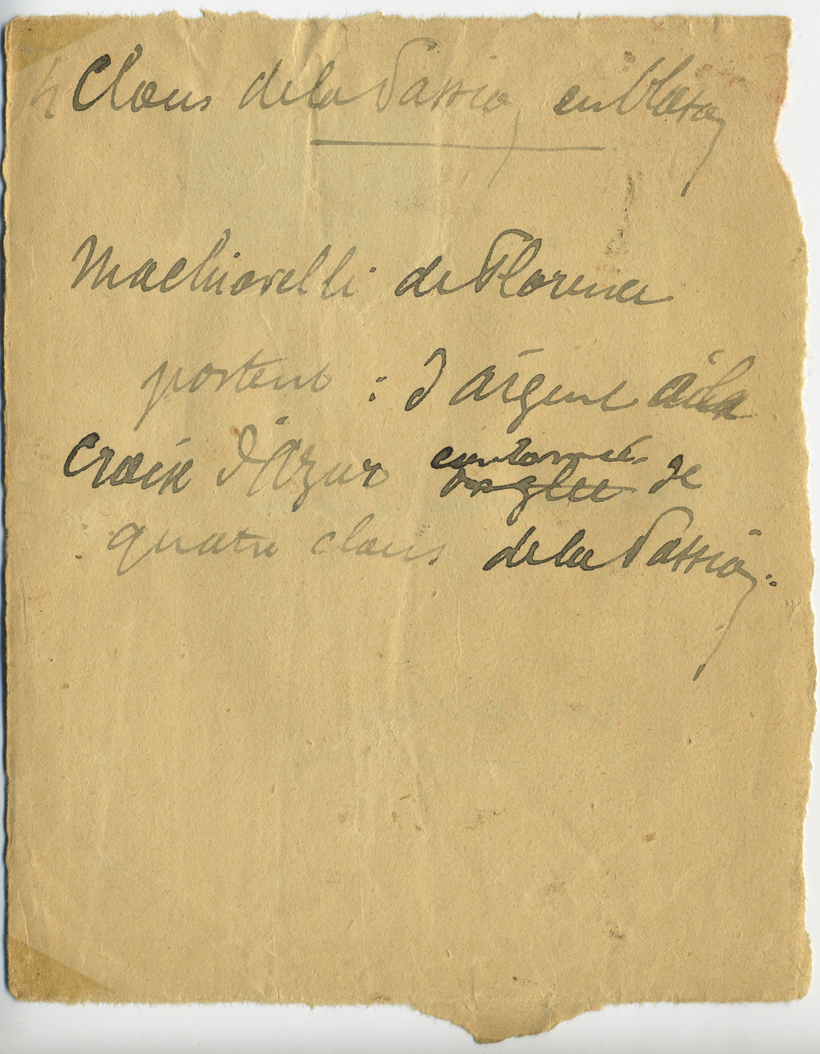 4 Clous de la Passion en blason
Machiavelli de Florence
portent : d'argent à la
croix d'Azur cantonnée de
quatre clous de la Passion.